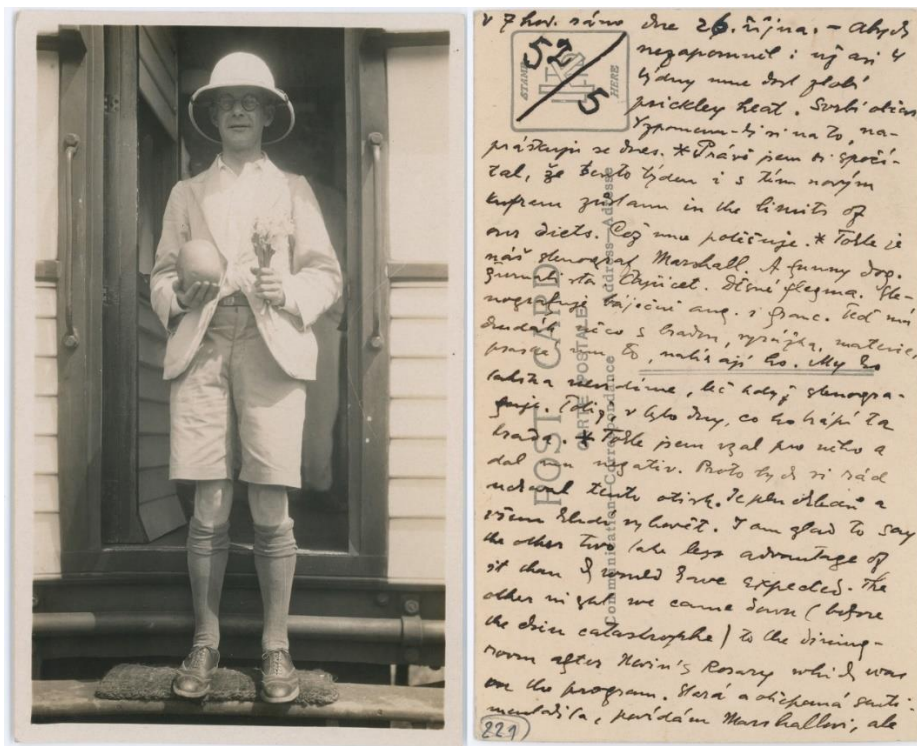 v 7 hod. ráno dne 26. října. – Abych
nezapomněl i už asi 4
týdny mne dost zlobí
prickley heat. Svrbí občas
Vzpomenu-li si na to, na-
práškuji se dnes. * Právě jsem si spočí-
tal, že tento týden i s tím novým
kufrem zůstanu in the limits of
our diets. Což mne potěšuje. * Tohle je
náš stenograf Marshall. A funny dog.
Žurnalista. Děsné flegma. Ste-
nografuje báječně ang. i franc. Teď má
něco s bradou, vyrážka,
to, nalíhají ho. My ho
nevidíme, leč když stenogra-
fuje. v tyto dny, co ho trápí ta
brada. * Tohle jsem vzal pro něho a
dal mu negativ. Proto bych si rád
nechal tento otisk. Je
všem vyhovět. I am glad to say
the other two take less advantage of
it than I would have expected. The
other night we came down (before
the chin catastrophe) to the dining-
room after Nevin's Rosary which was
on the program. Stará a senti-
mentalita, povídám Marshallovi, ale
221
52/5
STAMP HERE
POST CARD
CARTE POSTALE
Communication—Correspondance
Address—Adresse